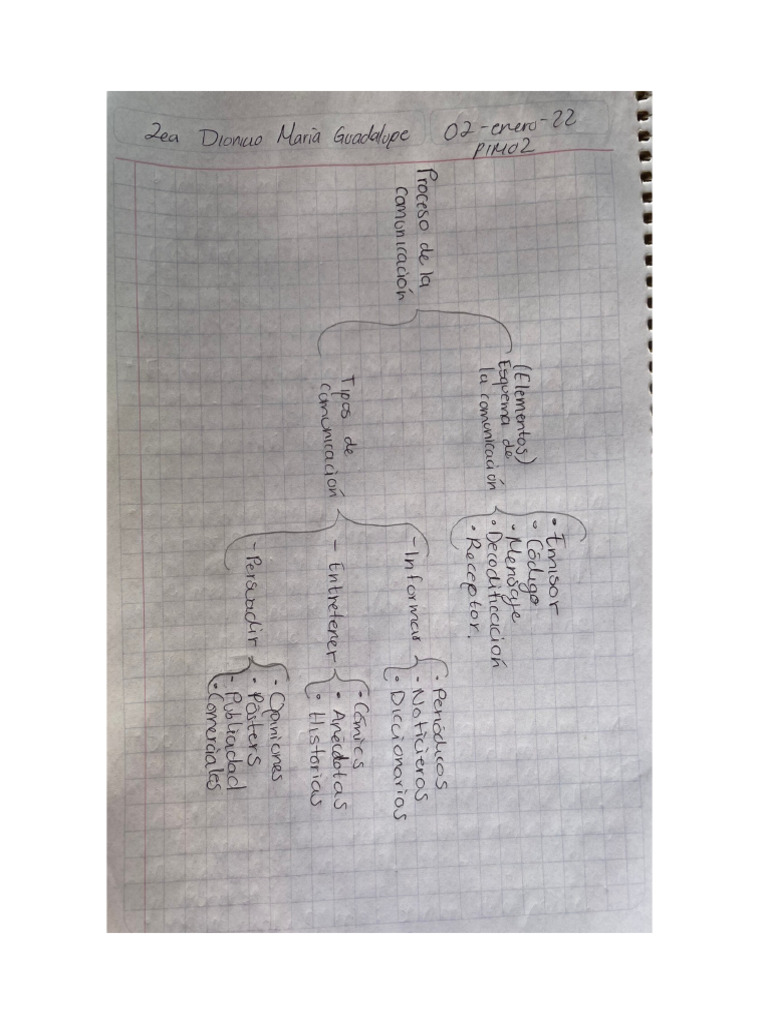 Zea Dionicio Maria Guadalupe
02-enero-22
PIM02
Proceso de la
comunicación
(Elementos)
Esquema de
la comunicación
• Emisor
• Código
• Mensaje
• Decodificación
• Receptor.
Tipos de
comunicación
- Informar
• Periódicos
• Noticieros
• Diccionarios
- Entretener
• Cómics
• Anécdotas
• Historias
- Persuadir
• Opiniones
• Pósters
• Publicidad
• Comerciales